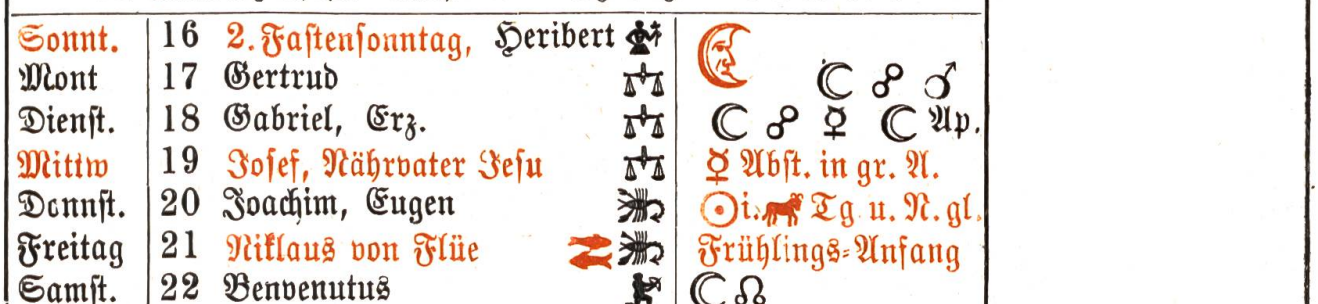 Sonnt. 16 2. Fastensonntag, Heribert
Mont 17 Gertrud ☾ ☍ ♂
Dienst. 18 Gabriel, Erz. ☾ ☍ ☿ ☾ Ap.
Mittw 19 Josef, Nährvater Jesu ☿ Abst. in gr. A.
Donnst. 20 Joachim, Eugen ☉ i. Tg u. N. gl.
Freitag 21 Niklaus von Flüe Frühlings-Anfang
Samst. 22 Benvenutus ☾ ☊